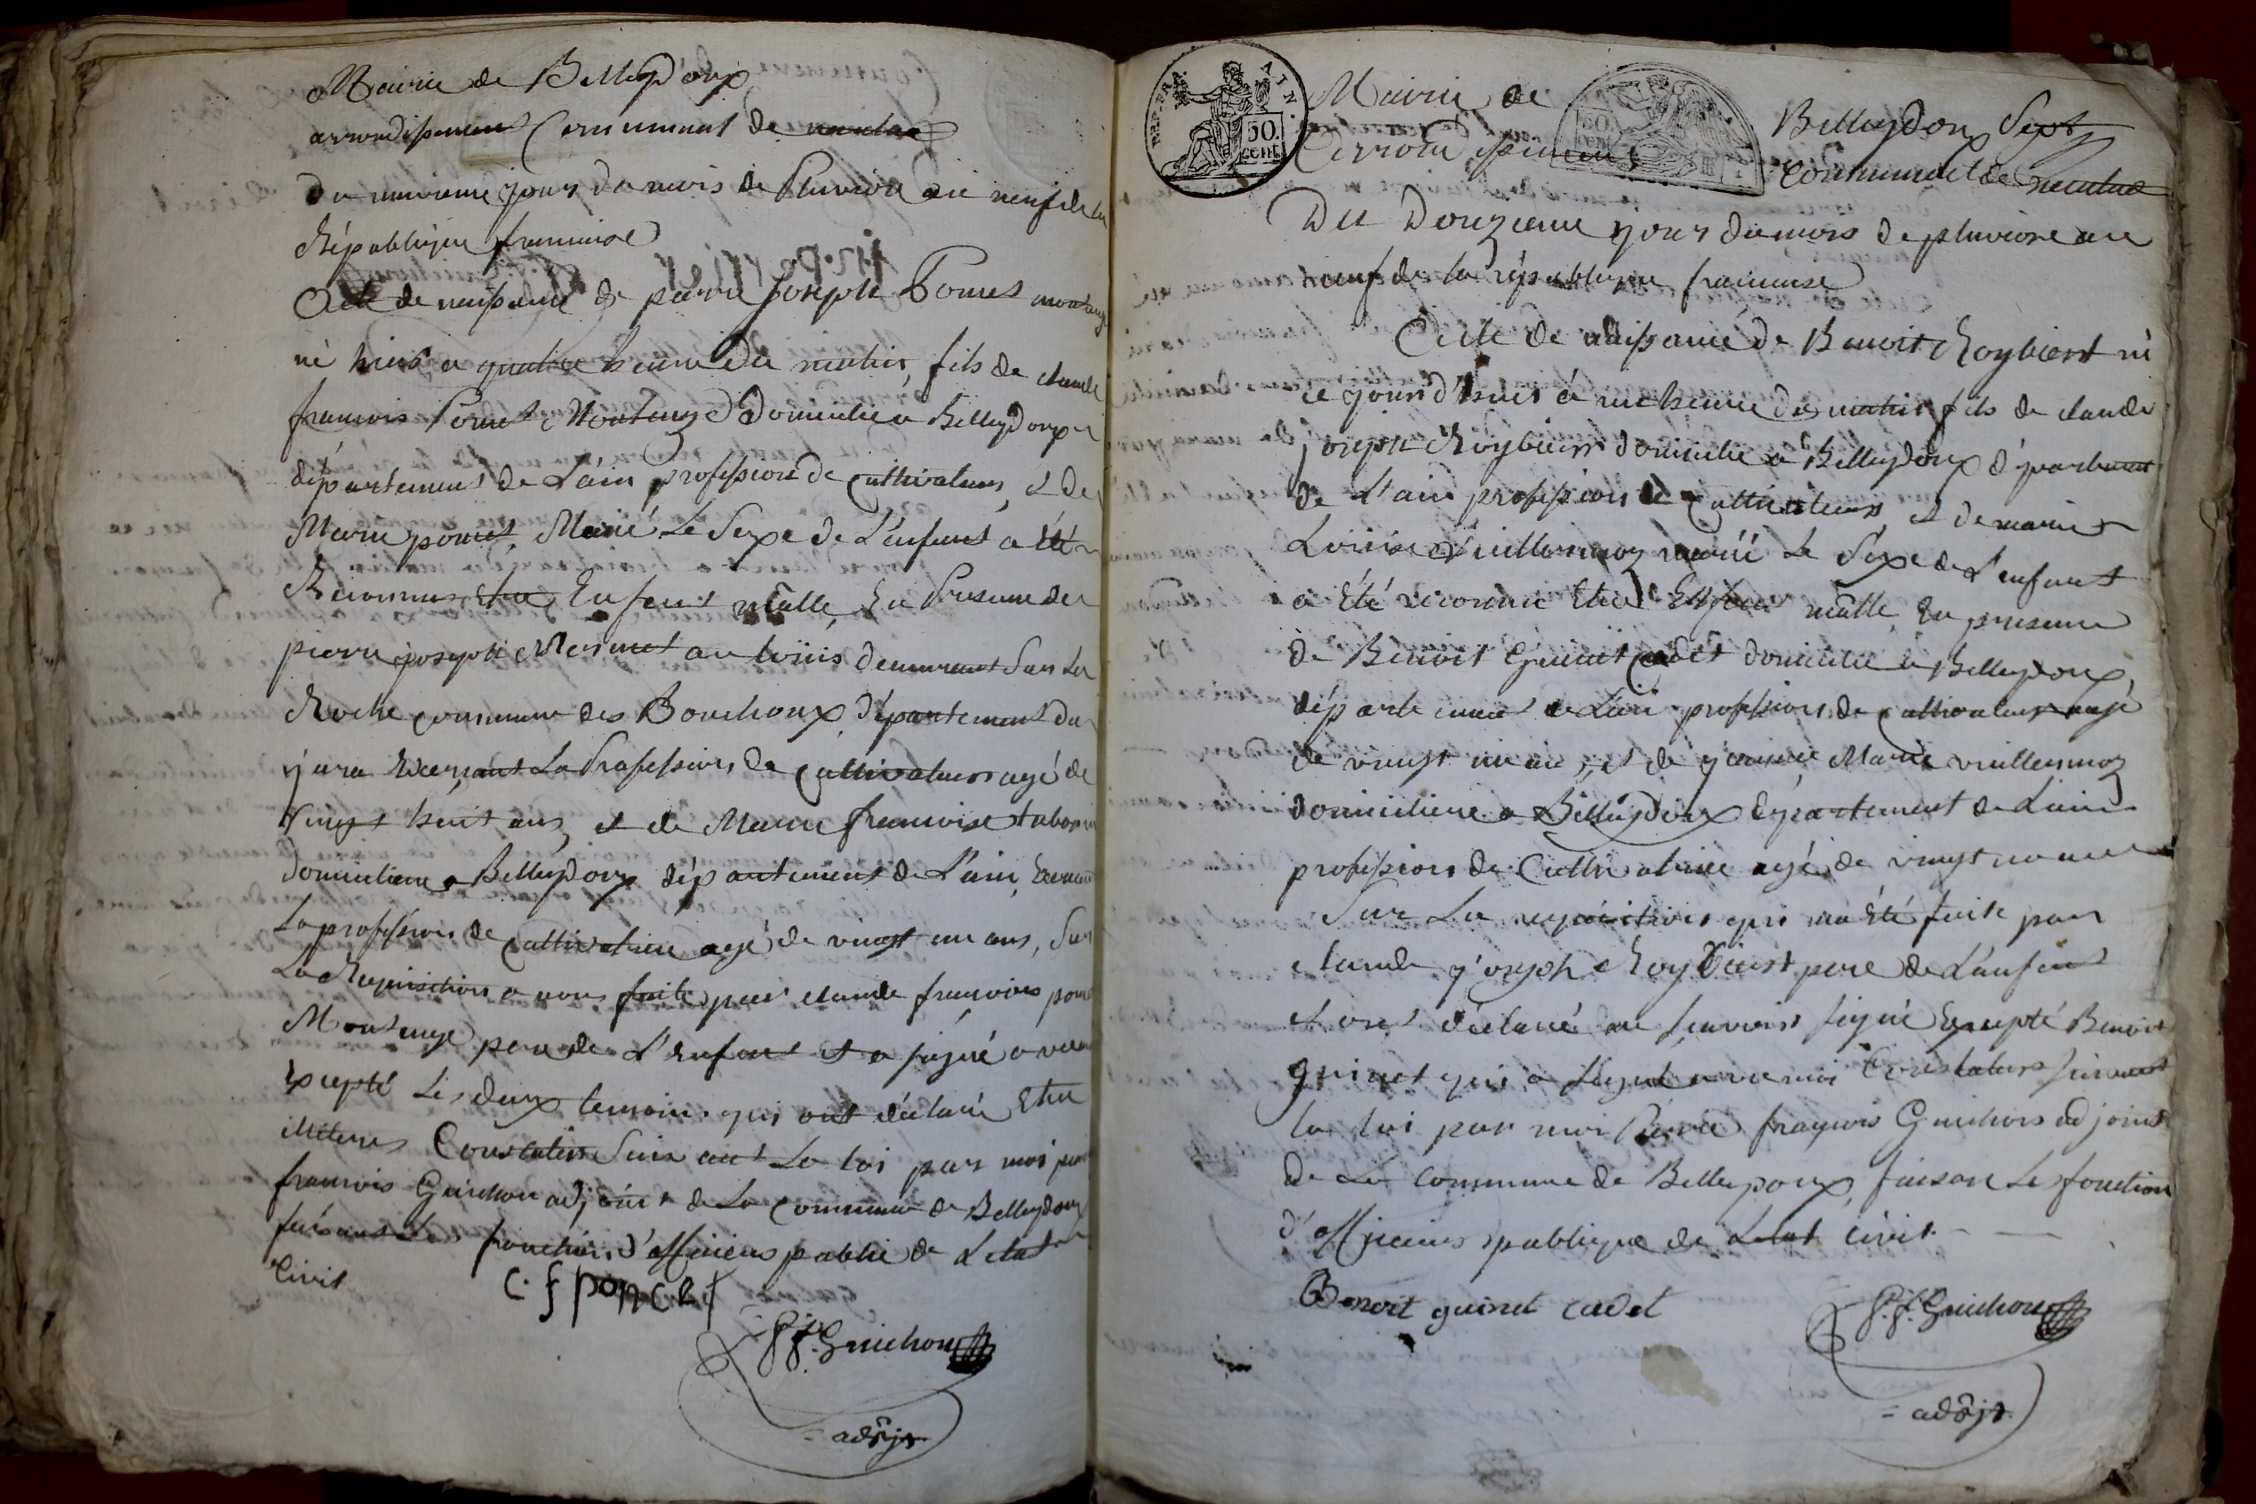 Mairie de Belleydoux
arrondissement Communal de nantua
Du neuvieme jour du mois de Pluviose an neuf de la
République francaise
Acte de naissance de pierre Joseph Poncet montange
né hier a quatre heure du matin, fils de claude
francois Poncet Montange Domicilie a Belleydoux
département de L'ain profession de Cultivateur, et de
Marie poncet, Marié Le Sexe de L'enfant a Eté
Reconnus Etre Enfant mâlle, En Presence de
pierre joseph Mermet au louis demeurant Sur La
Roche commune des Bouchoux, département du
jura Exerçant La Profession de Cultivateur agé de
vingt huit ans, et de Marie francoise
domiciliere a Belleydoux département de L'ain, Exercant
La profession de Cultivatrice agé de vingt un ans, Sur
La Requisition a nous faite par claude françois poncet
Montange pere de L'Enfant et a signé avec
Excepté Les deux temoins qui ont déclaré Etre
illiteres Constatér Suivant La loi par moi
francois Guichon adjoint de La Commune de Belleydoux
faisant Les fonction d'officiers public de L'état
Civil
C. f poncet
P. f. Guichon
= adjt
DEP. PAR. AIN.
50 cent
50 cen
Mairie de Belleydoux Sept
Arrondissement Communal de nantua
Du Douzieme jour du mois de pluviose an
neuf de la république francaise
Acte de naissance de Benoit Roybiert né
ce jourd'huis à une heure du matin fils de claude
joseph Roybiert domicilie a Belleydoux département
de L'ain profession de Cultivateur, et de marie
Louise Vuillermoz marié Le Séxe de L'enfant
a Eté reconnu Etre Enfant mâlle, En presence
de Benoit Guinet Cadet domicilie a Belleydoux,
département de L'ain profession de cultivateur agé
de vingt un an, et de Marie vuillermoz
domiciliere a Belleydoux département de L'ain
profession de Cultivatrice agé de vingt
Sur La requisitions qui m'a Eté faite par
claude joseph Roybiert pere de L'enfant
et ont déclaré ne scavoir signé Excepté Benoit
guinet qui a signé avec moi Constater suivant
la loi par moi Pierre françois Guichon adjoint
de La Commune de Belleydoux, faison Le fonction
d'officiers publique de L'etat civil
Benoit guinet cadet
P. f. Guichon
= adjt